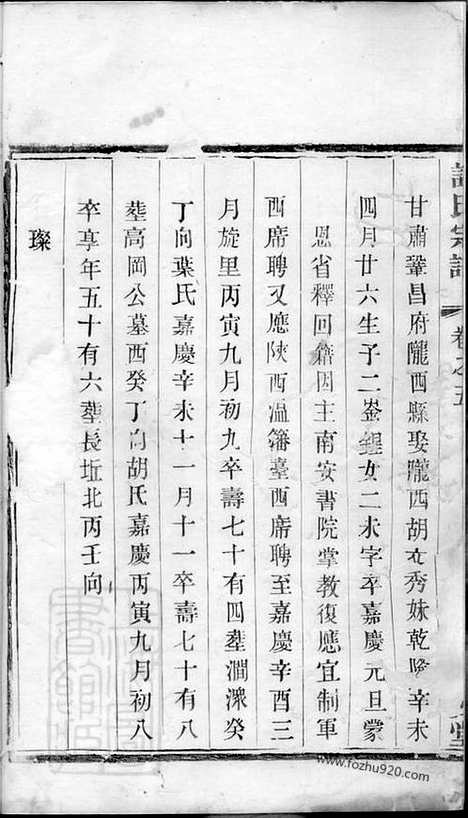 甘肅鞏昌府隴西縣娶隴西胡女秀妹乾隆辛未
四月廿六生子二崟鋥女二未字卒嘉慶元旦蒙
恩省釋回籍因主南安書院掌教復應宜制軍
西席聘又應陝西溫藩臺西席聘至嘉慶辛酉三
月旋里丙寅九月初九卒壽七十有四塟澗濼癸
丁向葉氏嘉慶辛未十一月十一卒壽七十有八
塟高岡公墓西癸丁向胡氏嘉慶丙寅九月初八
卒享年五十有六塟長坵北丙壬向
璨
氏宗譜 卷之五
堂
www.fozhu920.com